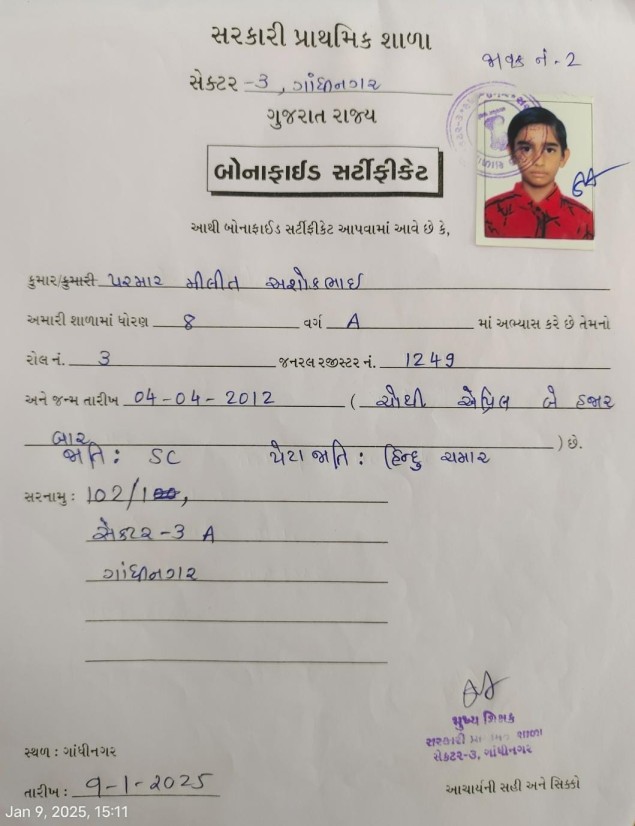 સરકારી પ્રાથમિક શાળા
જાવક નં - 2
સેક્ટર - 3, ગાંધીનગર
ગુજરાત રાજ્ય
બોનાફાઈડ સર્ટીફીકેટ
આથી બોનાફાઈડ સર્ટીફીકેટ આપવામાં આવે છે કે,
કુમાર/કુમારી પરમાર મીલીત અશોકભાઈ
અમારી શાળામાં ધોરણ 8 વર્ગ A માં અભ્યાસ કરે છે તેમનો
રોલ નં. 3 જનરલ રજીસ્ટર નં. 1249
અને જન્મ તારીખ 04-04-2012 ( ચોથી એપ્રિલ બે હજાર
બાર ) છે.
જાતિ : SC પેટા જાતિ : હિન્દુ ચમાર
સરનામુ : 102/1,
સેક્ટર-3 A
ગાંધીનગર
મુખ્ય શિક્ષક
સરકારી શાળા
સેક્ટર-૩, ગાંધીનગર
સ્થળ : ગાંધીનગર
આચાર્યની સહી અને સિક્કો
તારીખ : 9-1-2025
Jan 9, 2025, 15:11